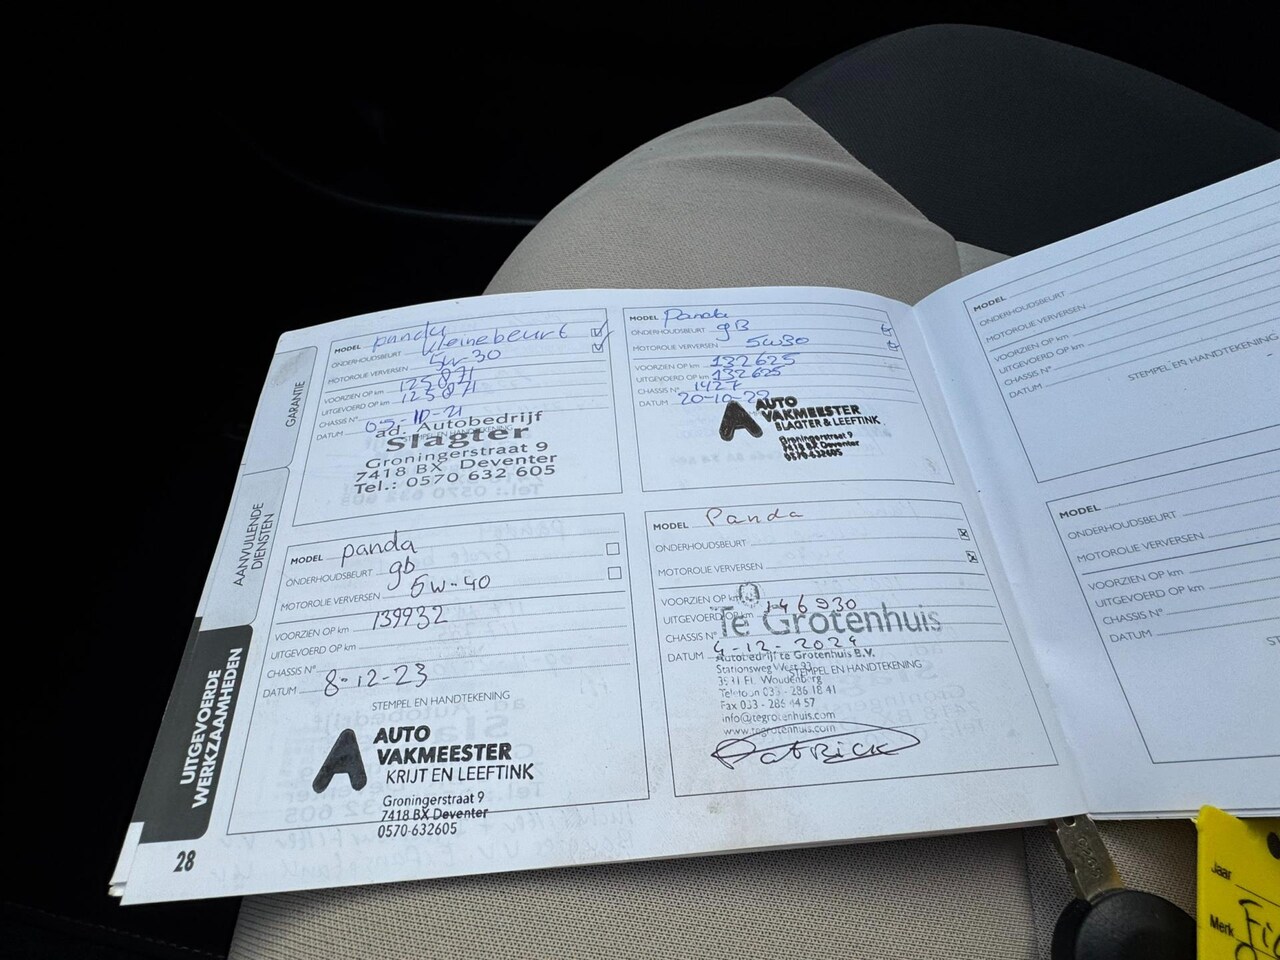 GARANTIE
AANVULLENDE
DIENSTEN
UITGEVOERDE
WERKZAAMHEDEN
28
MODEL panda
ONDERHOUDSBEURT kleinebeurt
MOTOROLIE VERVERSEN 5w-30
VOORZIEN OP km 125871
UITGEVOERD OP km 125871
CHASSIS N°
DATUM 05-10-21
STEMPEL EN HANDTEKENING
ad. Autobedrijf
Slagter
Groningerstraat 9
7418 BX Deventer
Tel.: 0570 632 605
MODEL Panda
ONDERHOUDSBEURT gB
MOTOROLIE VERVERSEN 5w30
VOORZIEN OP km 132625
UITGEVOERD OP km 132625
CHASSIS N° 1427
DATUM 20-10-22
AUTO
VAKMEESTER
SLAGTER & LEEFTINK
Groningerstraat 9
7418 BX Deventer
0570-632605
MODEL panda
ONDERHOUDSBEURT gb
MOTOROLIE VERVERSEN 5w-40
VOORZIEN OP km 139932
UITGEVOERD OP km
CHASSIS N°
DATUM 8-12-23
STEMPEL EN HANDTEKENING
AUTO
VAKMEESTER
KRIJT EN LEEFTINK
Groningerstraat 9
7418 BX Deventer
0570-632605
MODEL Panda
ONDERHOUDSBEURT
MOTOROLIE VERVERSEN
VOORZIEN OP km 146930
UITGEVOERD OP km
Te Grotenhuis
CHASSIS N°
DATUM 4-12-2024
Autobedrijf te Grotenhuis B.V.
Stationsweg West 93
STEMPEL EN HANDTEKENING
3931 EL Woudenberg
Telefoon 033 - 286 18 41
Fax 033 - 286 44 57
info@tegrotenhuis.com
www.tegrotenhuis.com
Patrick
MODEL
ONDERHOUDSBEURT
MOTOROLIE VERVERSEN
VOORZIEN OP km
UITGEVOERD OP km
CHASSIS N°
DATUM
STEMPEL EN HANDTEKENING
MODEL
ONDERHOUDSBEURT
MOTOROLIE VERVERSEN
VOORZIEN OP km
UITGEVOERD OP km
CHASSIS N°
DATUM
Jaar
Merk